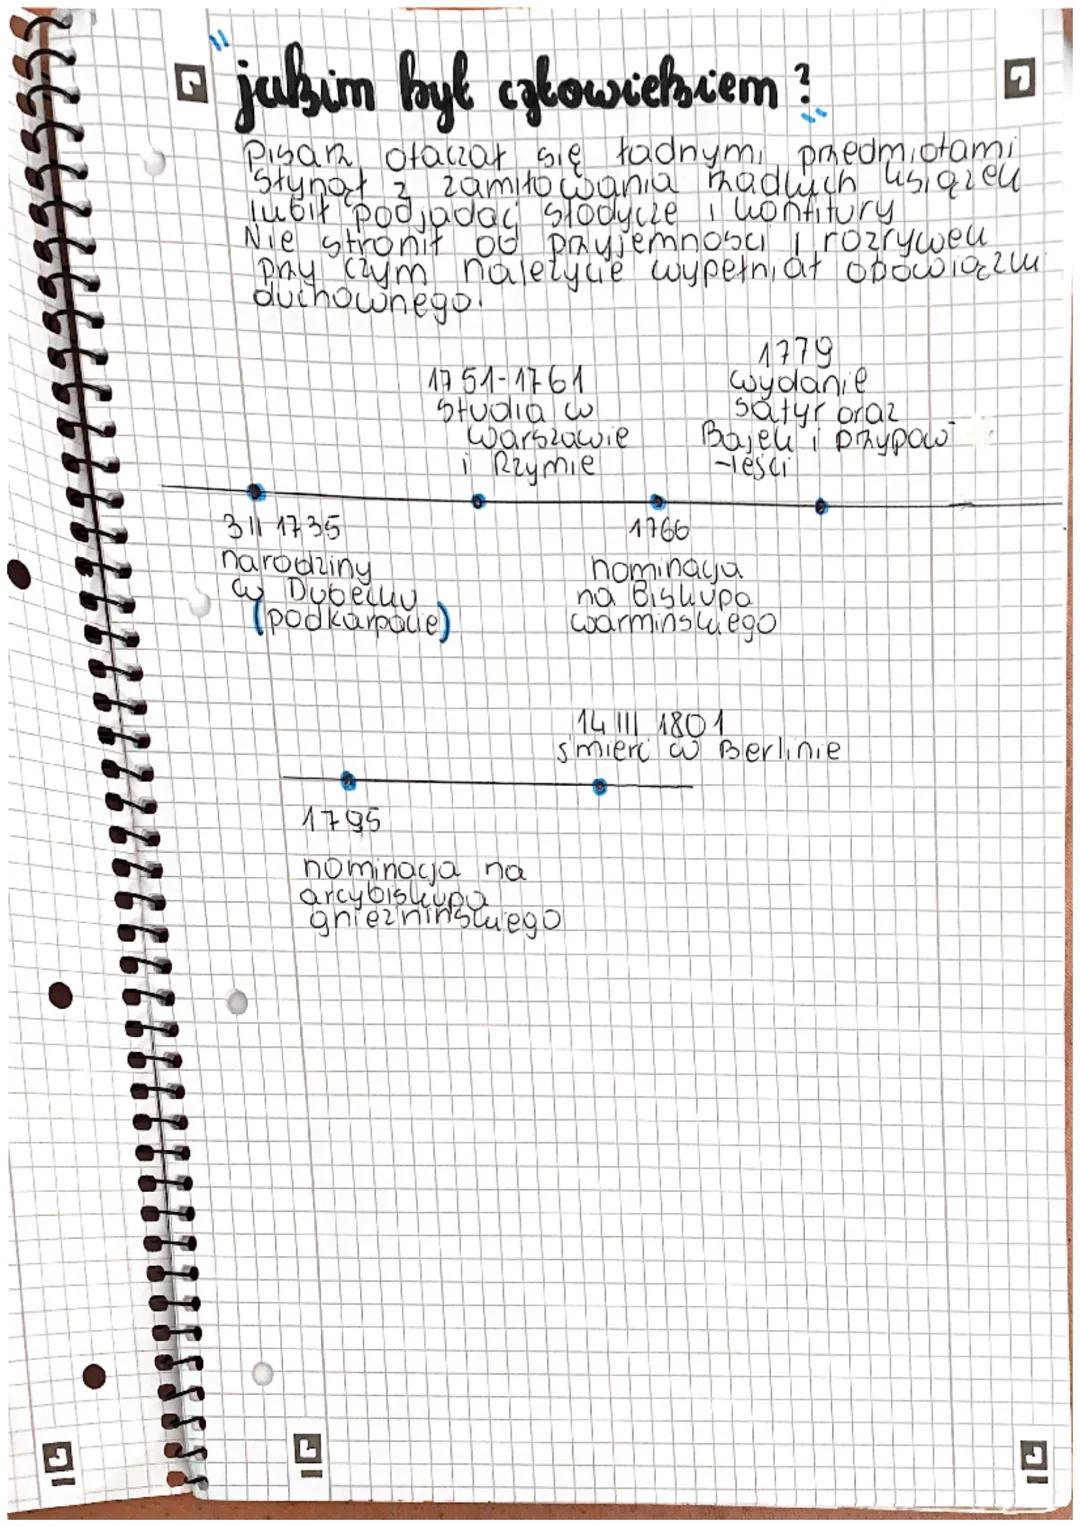 "jakim był człowiekiem?"
Pisarz otaczał się ładnymi przedmiotami
słynął z zamiłowania rzadkich książek
lubił podjadać słodycze i konfitury
Nie stronił od przyjemności i rozrywek
przy czym należycie wypełniał obowiązki
duchownego.
1751-1761
studia w
Warszawie
i Rzymie
1779
wydanie
satyr oraz
Bajek i przypow
-ieści
3 II 1735
narodziny
w Dubecku
(podkarpacie)
1766
nominacja
na Biskupa
warmińskiego
14 III 1801
śmierć w Berlinie
1795
nominacja na
arcybiskupa
gnieźnińskiego